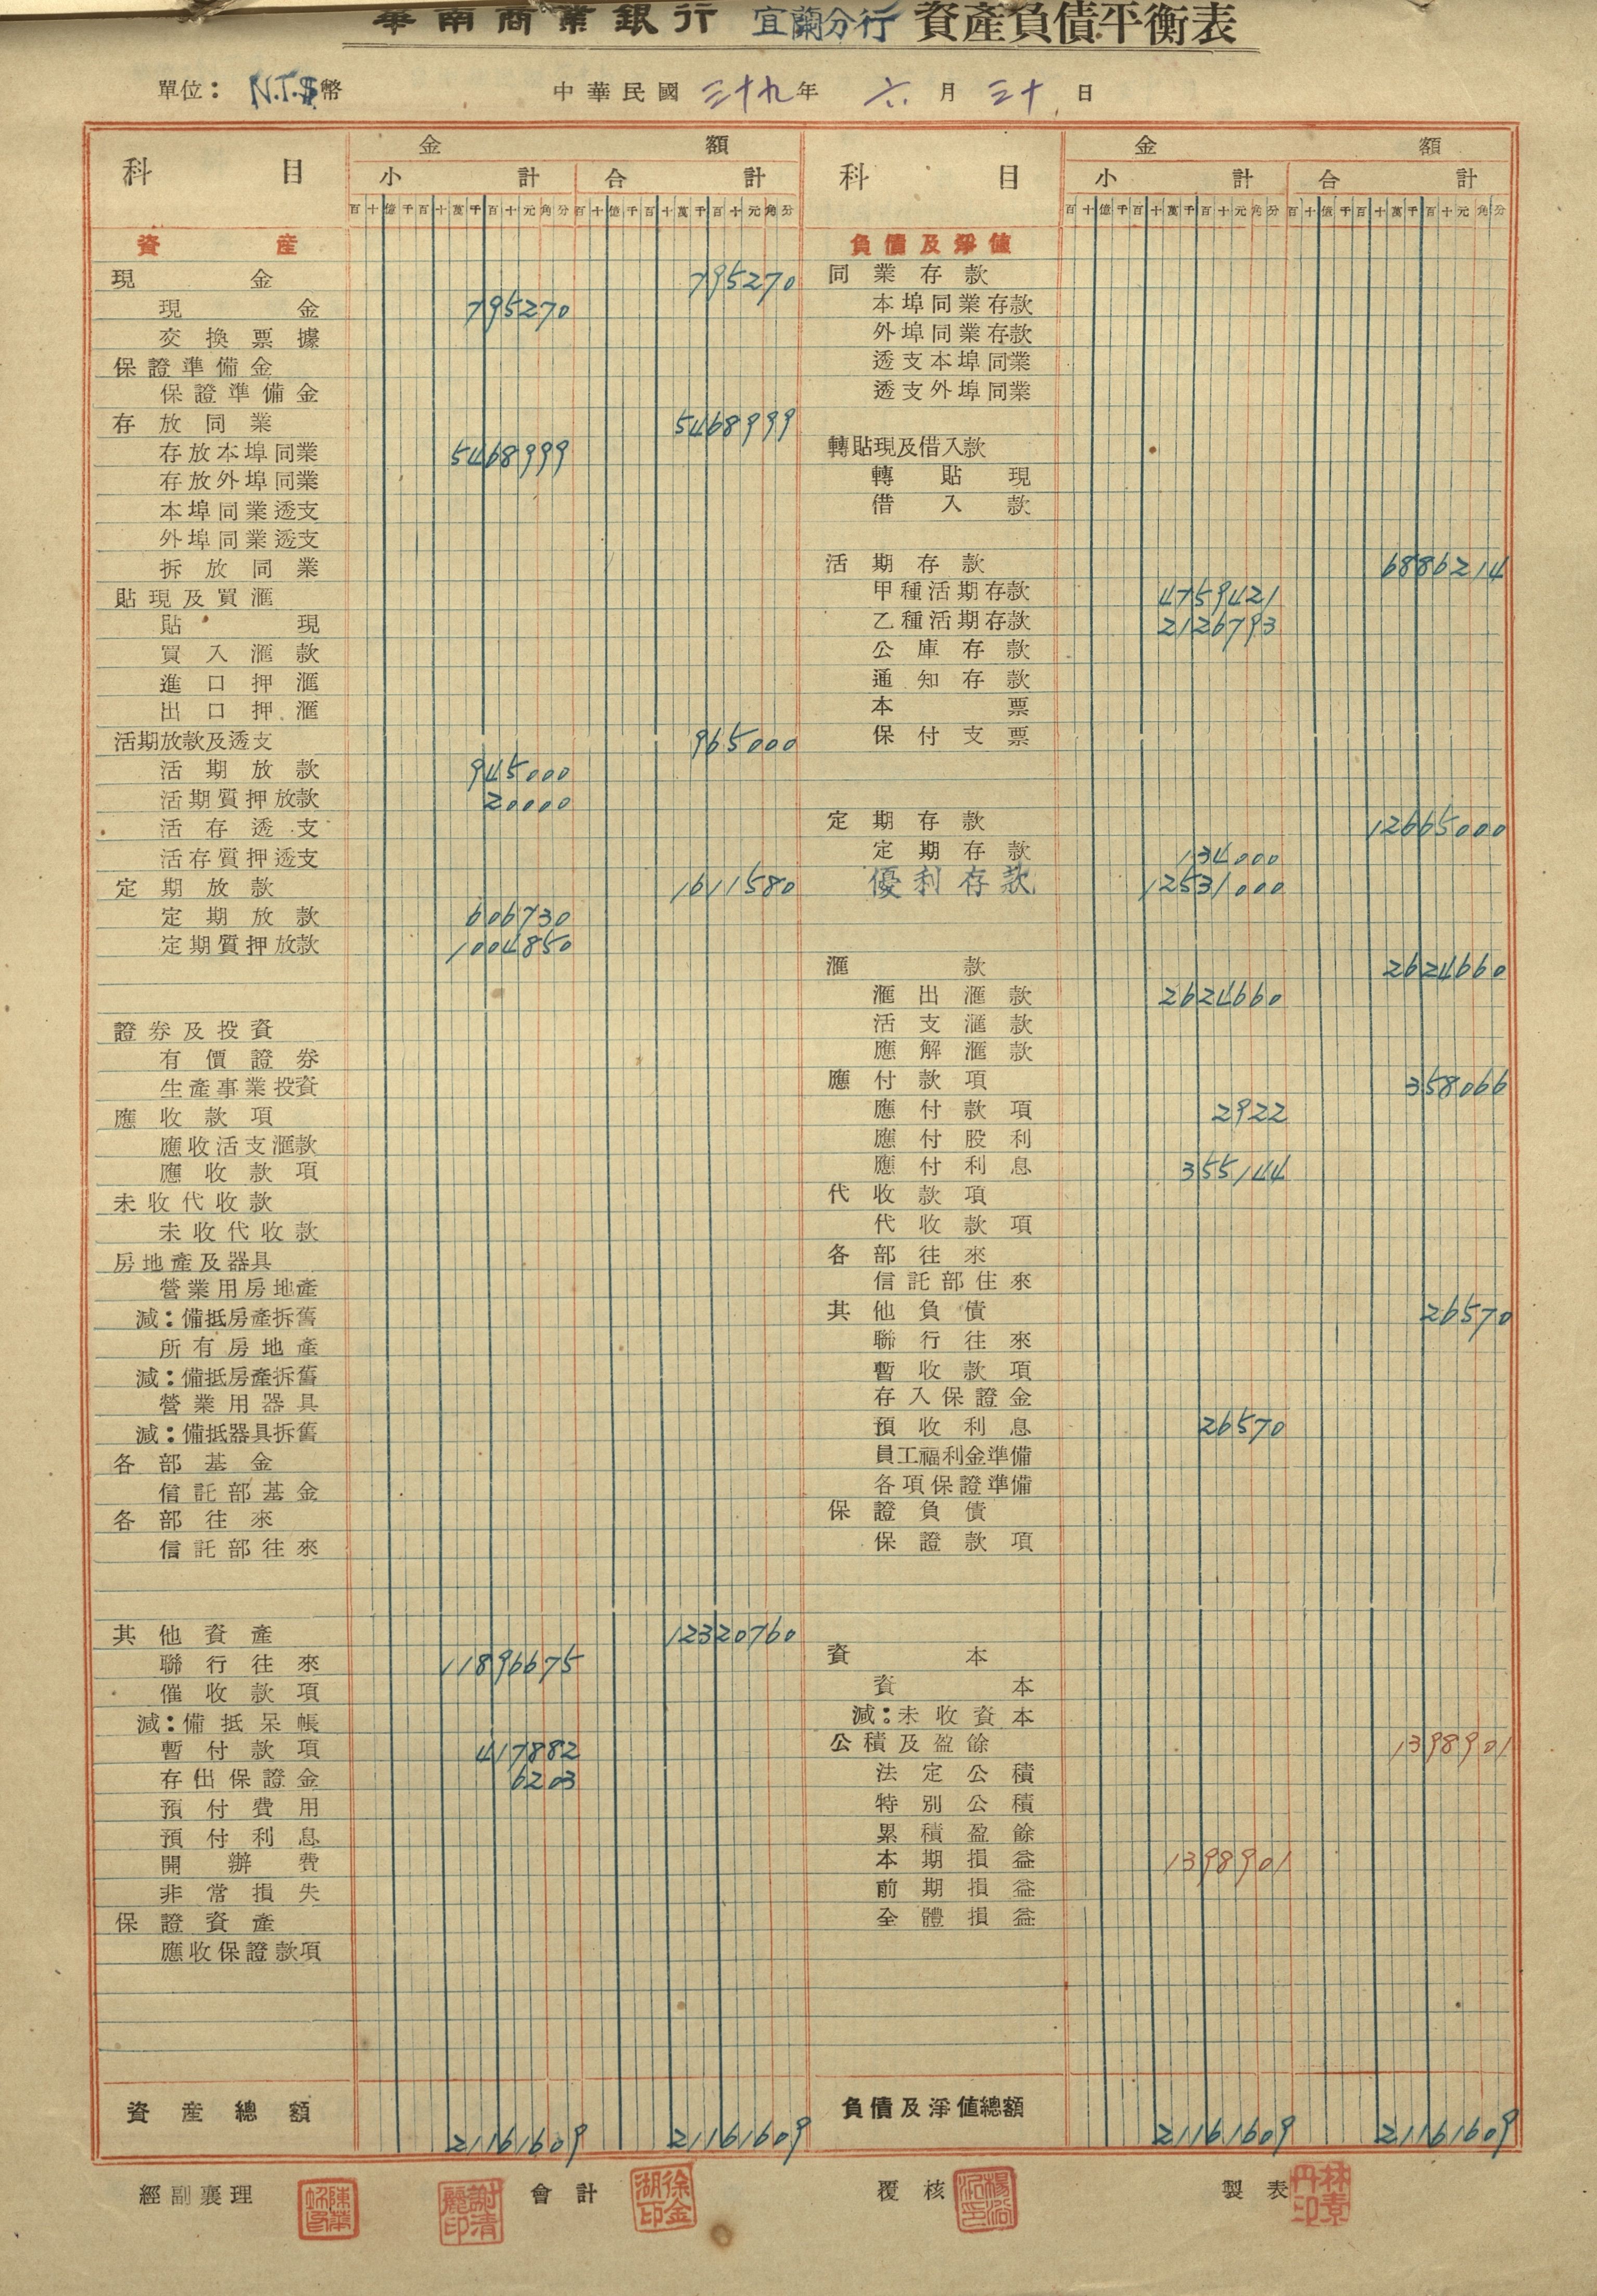 華南商業銀行 宜蘭分行 資產負債平衡表
單位：N.T.$幣 中華民國三十九年 六月三十日
科目 金額
小計 合計
百十億千百十萬千百十元角分 百十億千百十萬千百十元角分
資產
現金 795270
現金 795270
交換票據
保證準備金
保證準備金
存放同業 5468999
存放本埠同業 5468999
存放外埠同業
本埠同業透支
外埠同業透支
拆放同業
貼現及買滙
貼現
買入滙款
進口押滙
出口押滙
活期放款及透支 965000
活期放款 945000
活期質押放款 20000
活存透支
活存質押透支
定期放款 1611580
定期放款 606730
定期質押放款 1004850
證券及投資
有價證券
生產事業投資
應收款項
應收活支滙款
應收款項
未收代收款
未收代收款
房地產及器具
營業用房地產
減：備抵房產拆舊
所有房地產
減：備抵房產拆舊
營業用器具
減：備抵器具拆舊
各部基金
信託部基金
各部往來
信託部往來
其他資產 12320760
聯行往來 11896675
催收款項
減：備抵呆帳
暫付款項 417882
存出保證金 6203
預付費用
預付利息
開辦費
非常損失
保證資產
應收保證款項
資產總額 21161609 21161609
科目 金額
小計 合計
百十億千百十萬千百十元角分 百十億千百十萬千百十元角分
負債及淨值
同業存款
本埠同業存款
外埠同業存款
透支本埠同業
透支外埠同業
轉貼現及借入款
轉貼現
借入款
活期存款 6886214
甲種活期存款 4759421
乙種活期存款 2126793
公庫存款
通知存款
本票
保付支票
定期存款 12665000
定期存款 134000
優利存款 12531000
滙款 2624660
滙出滙款 2624660
活支滙款
應解滙款
應付款項 358066
應付款項 2922
應付股利
應付利息 355144
代收款項
代收款項
各部往來
信託部往來
其他負債 26570
聯行往來
暫收款項
存入保證金
預收利息 26570
員工福利金準備
各項保證準備
保證負債
保證款項
資本
資本
減：未收資本
公積及盈餘 1398901
法定公積
特別公積
累積盈餘
本期損益 1398901
前期損益
全體損益
負債及淨值總額 21161609 21161609
經副襄理 謝清麗印 會計 徐金湖印 覆核 製表 林素丹印